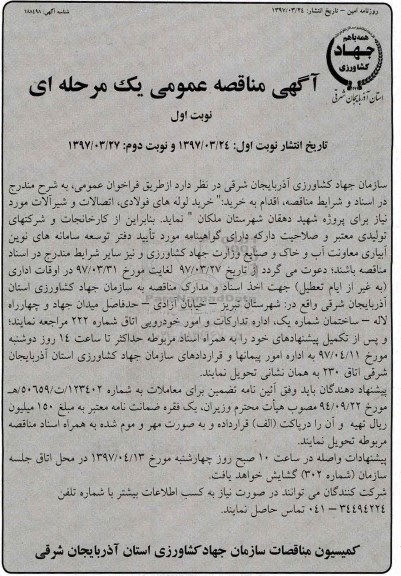 روزنامه امین - تاریخ انتشار: ۱۳۹۷/۰۳/۲۴
شناسه آگهی: ۱۸۸۴۹۸
همه با هم
جهاد
کشاورزی
استان آذربایجان شرقی
آگهی مناقصه عمومی یک مرحله ای
نوبت اول
تاریخ انتشار نوبت اول: ۱۳۹۷/۰۳/۲۴ و نوبت دوم: ۱۳۹۷/۰۳/۲۷
سازمان جهاد کشاورزی آذربایجان شرقی در نظر دارد ازطریق فراخوان عمومی، به شرح مندرج
در اسناد و شرایط مناقصه، اقدام به خرید:" خرید لوله های فولادی، اتصالات و شیرآلات مورد
نیاز برای پروژه شهید دهقان شهرستان ملکان " نماید. بنابراین از کارخانجات و شرکتهای
تولیدی معتبر و صلاحیت دارکه دارای گواهینامه مورد تأیید دفتر توسعه سامانه های نوین
آبیاری معاونت آب و خاک و صنایع وزارت جهاد کشاورزی و نیز سایر شرایط مندرج در اسناد
مناقصه باشند؛ دعوت می گردد از تاریخ ۹۷/۰۳/۲۷ لغایت مورخ ۹۷/۰۳/۳۱ در اوقات اداری
(به غیر از ایام تعطیل) جهت اخذ اسناد و مدارک مناقصه به سازمان جهاد کشاورزی استان
آذربایجان شرقی واقع در: شهرستان تبریز - خیابان آزادی - حدفاصل میدان جهاد و چهارراه
لاله - ساختمان شماره یک، اداره تدارکات و امور خودرویی اتاق شماره ۲۲۲ مراجعه نمایند؛
و پس از تکمیل پیشنهادهای خود را به همراه اسناد مربوطه حداکثر تا ساعت ۱۴ روز دوشنبه
مورخ ۹۷/۰۴/۱۱ به اداره امور پیمانها و قراردادهای سازمان جهاد کشاورزی استان آذربایجان
شرقی اتاق ۲۳۰ به همان نشانی تحویل نمایند.
پیشنهاد دهندگان باید وفق آئین نامه تضمین برای معاملات به شماره ۱۲۳۴۰۲/ت/۵۰۶۵۹هـ
مورخ ۹۴/۰۹/۲۲ مصوب هیأت محترم وزیران، یک فقره ضمانت نامه معتبر به مبلغ ۱۵۰ میلیون
ریال تهیه و آن را درپاکت (الف) قرارداده و به صورت مهر و موم شده به همراه اسناد مناقصه
مربوطه تحویل نمایند.
پیشنهادات واصله در ساعت ۱۰ صبح روز چهارشنبه مورخ ۱۳۹۷/۰۴/۱۳ در محل اتاق جلسه
سازمان (شماره ۳۰۲) گشایش خواهد یافت.
شرکت کنندگان می توانند در صورت نیاز به کسب اطلاعات بیشتر با شماره تلفن
۳۴۴۹۴۲۲۴ - ۰۴۱ تماس حاصل نمایند.
کمیسیون مناقصات سازمان جهادکشاورزی استان آذربایجان شرقی